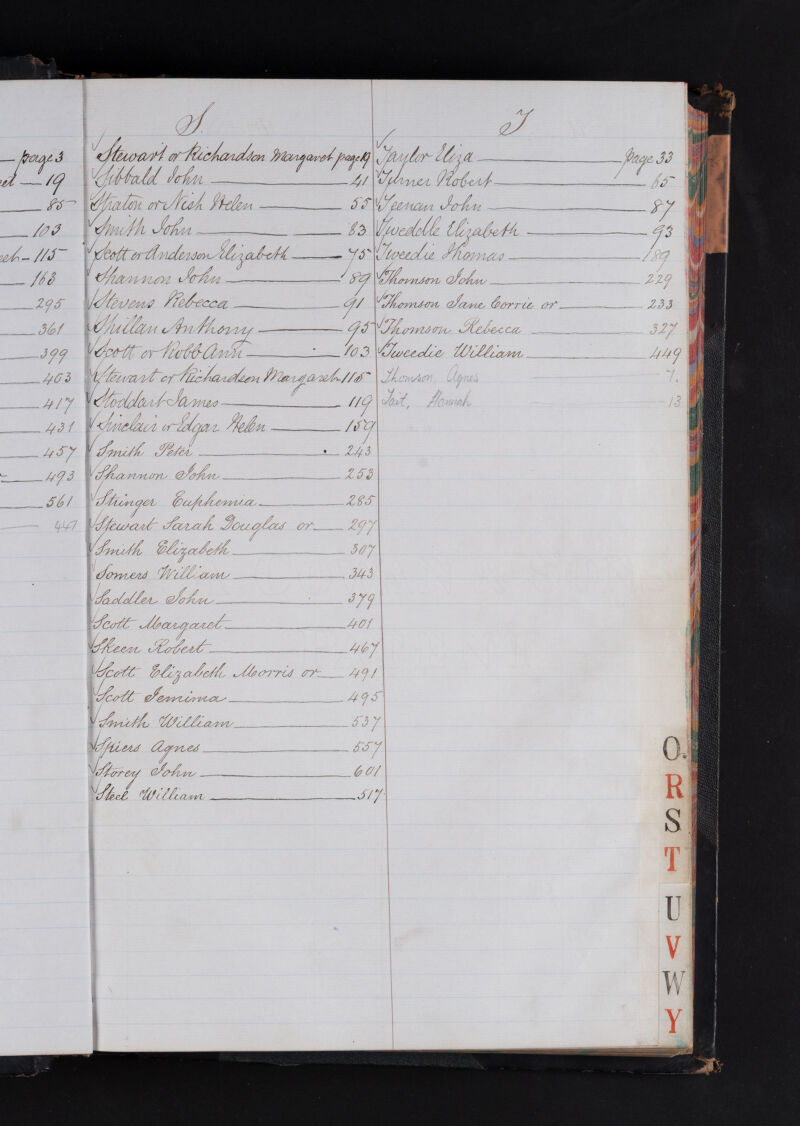 page 3
19
85
103
115
163
295
361
399
403
417
431
457
493
561
447
S.
Stewart or Richardson Margaret page 19
Sibbald John 41
Straton or Nish Helen 55
Smith John 83
Scott or Anderson Elizabeth 75
Shannon John 89
Stevens Rebecca 91
Shillan Anthony 95
Scott or Robb Ann 103
Stewart or Richardson Margaret 115
Stoddart James 119
Sinclair or Edgar Helen 159
Smith Peter 243
Shannon John 253
Stringer Euphemia 285
Stewart Sarah Douglas or 297
Smith Elizabeth 307
Somers William 343
Saddler John 379
Scott Margaret 401
Skeen Robert 467
Scott Elizabeth Morris or 491
Scott Jemima 495
Smith William 537
Spiers Agnes 557
Storey John 601
Steel William 517
T
Taylor Eliza page 33
Turner Robert 65
Teenan John 87
Tweedlle Elizabeth 93
Tweedie Thomas 189
Thomson John 229
Thomson Jane Corrie or 233
Thomson Rebecca 327
Tweedie William 449
Thomson, Agnes 7.
Tait, Hannah 13
O.
R
S
T
U
V
W
Y